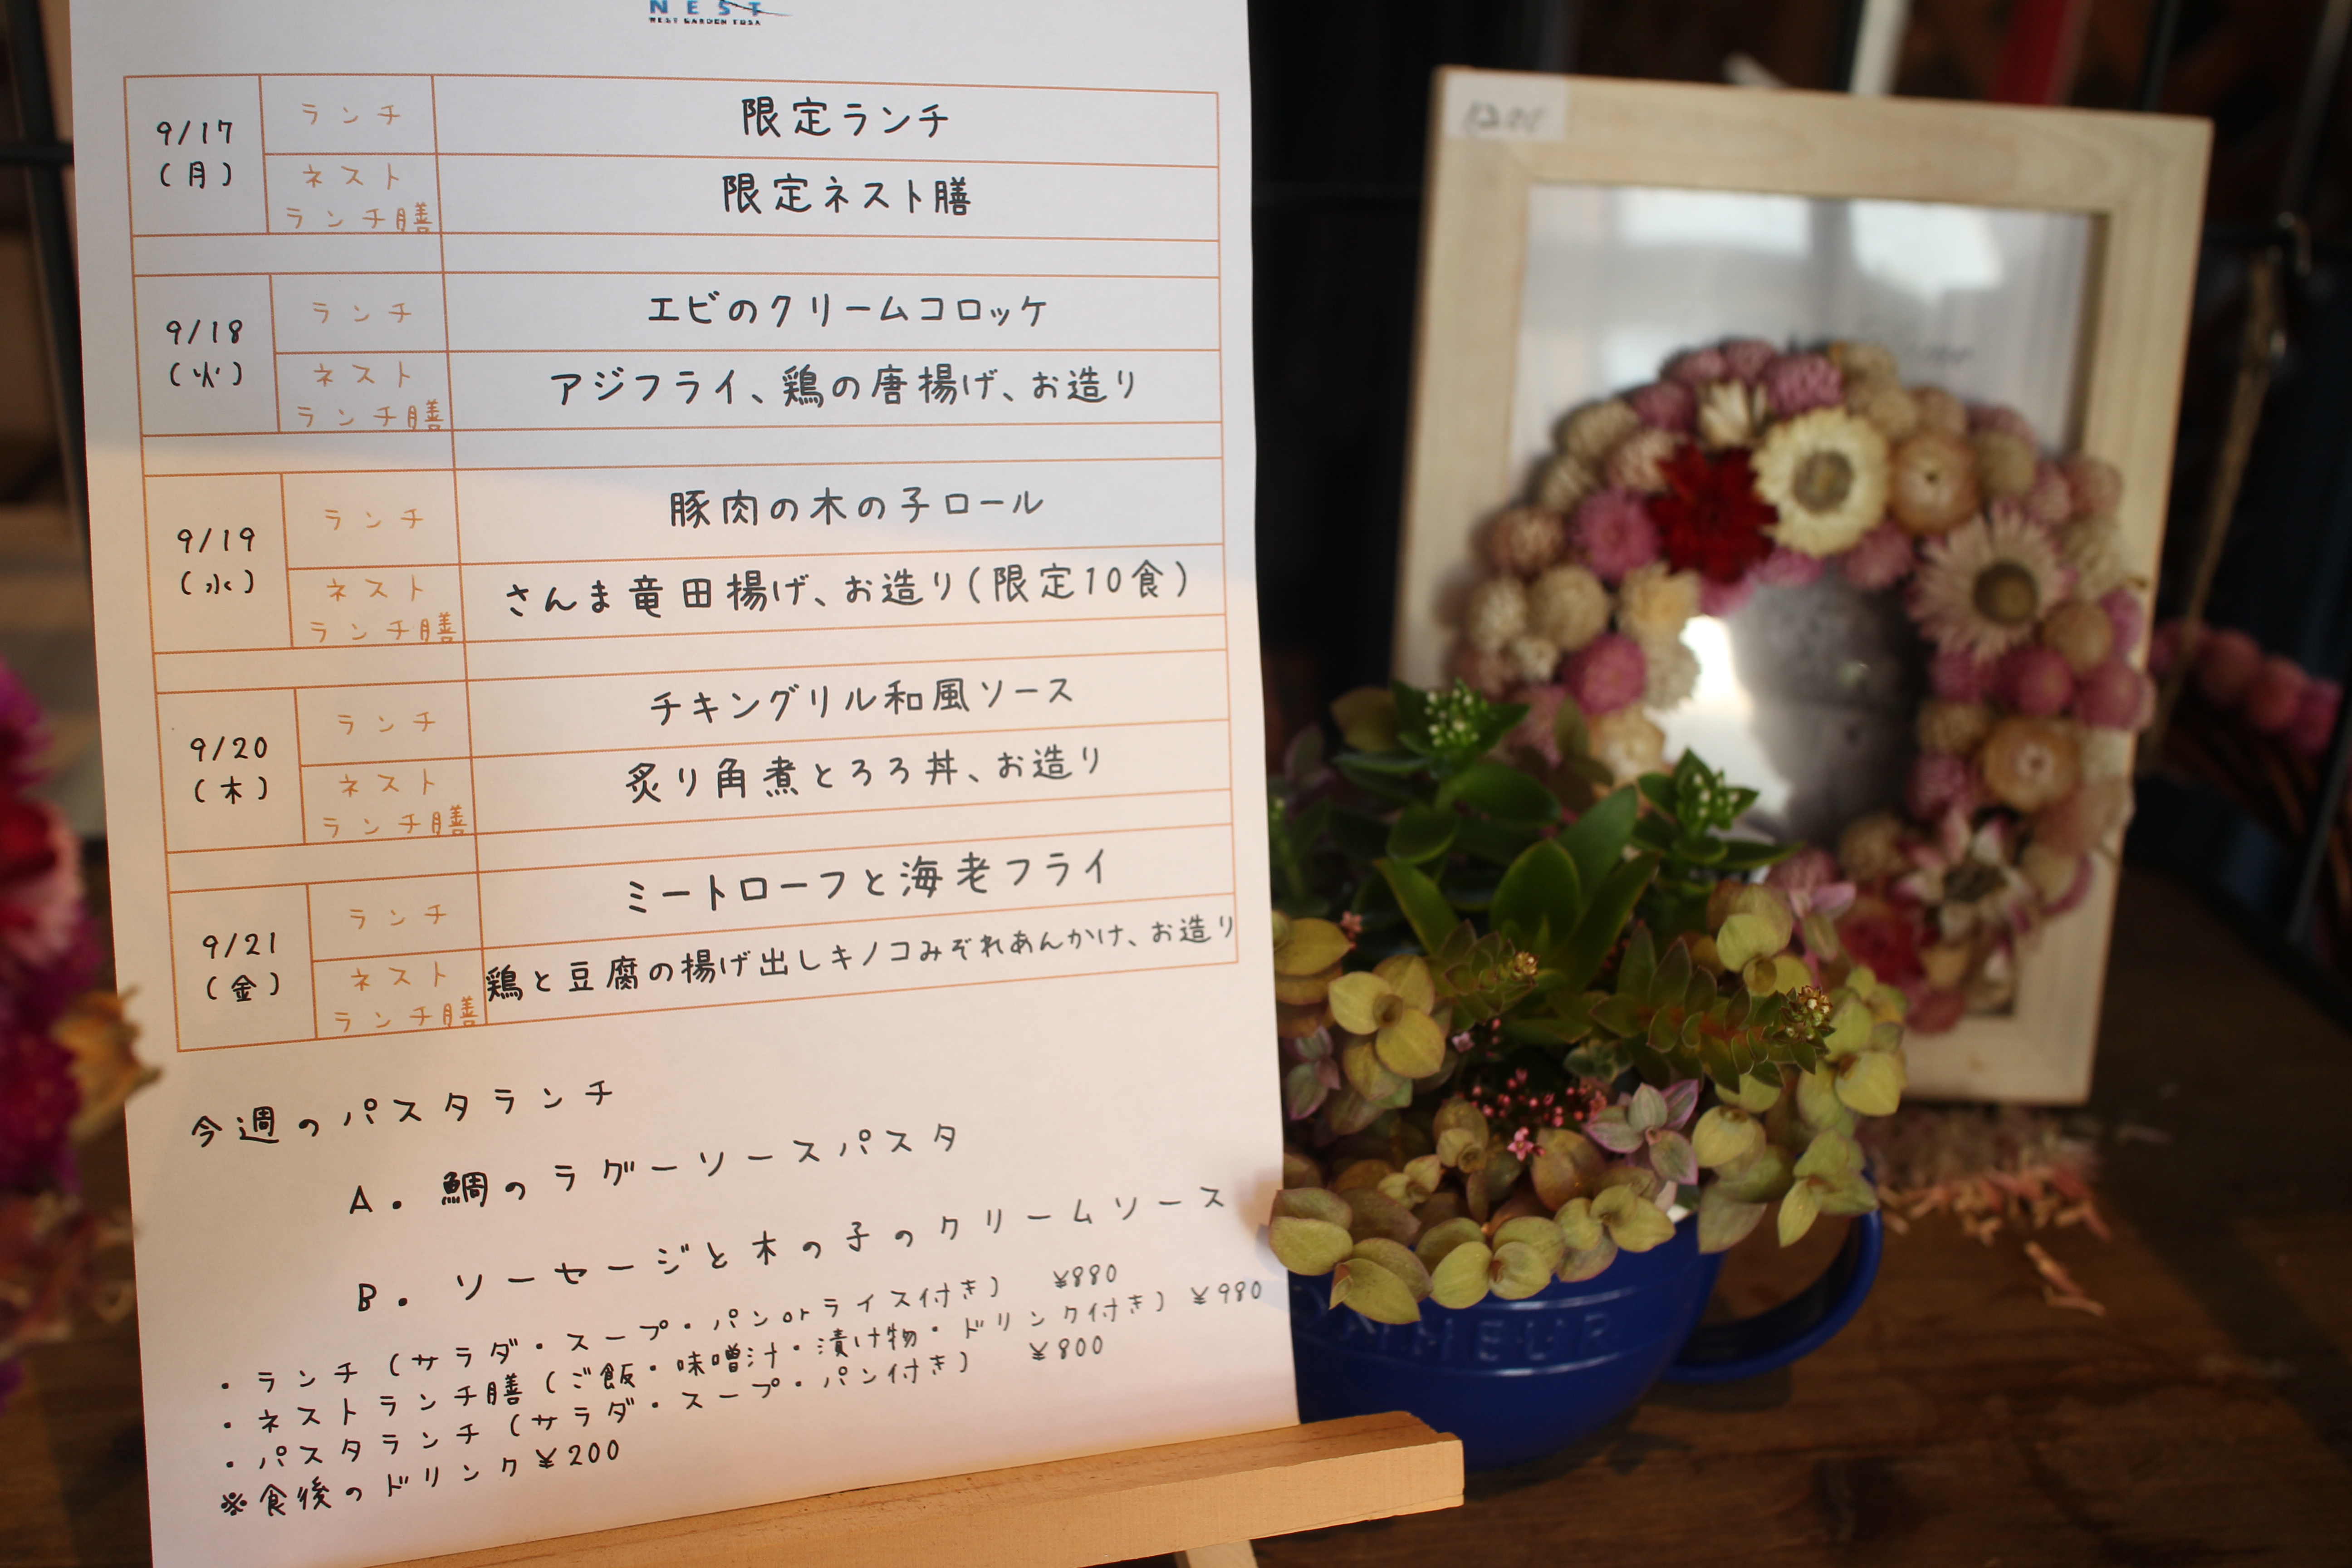 NEST
NEST GARDEN FUSA
9/17
(月)
ランチ
限定ランチ
ネスト
ランチ膳
限定ネスト膳
9/18
(火)
ランチ
エビのクリームコロッケ
ネスト
ランチ膳
アジフライ、鶏の唐揚げ、お造り
9/19
(水)
ランチ
豚肉の木の子ロール
ネスト
ランチ膳
さんま竜田揚げ、お造り(限定10食)
9/20
(木)
ランチ
チキングリル和風ソース
ネスト
ランチ膳
炙り角煮とろろ丼、お造り
9/21
(金)
ランチ
ミートローフと海老フライ
ネスト
ランチ膳
鶏と豆腐の揚げ出しキノコみぞれあんかけ、お造り
今週のパスタランチ
A. 鯛のラグーソースパスタ
B. ソーセージと木の子のクリームソース
・ランチ(サラダ・スープ・パンorライス付き) ¥880
・ネストランチ膳(ご飯・味噌汁・漬け物・ドリンク付き) ¥980
・パスタランチ(サラダ・スープ・パン付き) ¥800
※食後のドリンク¥200